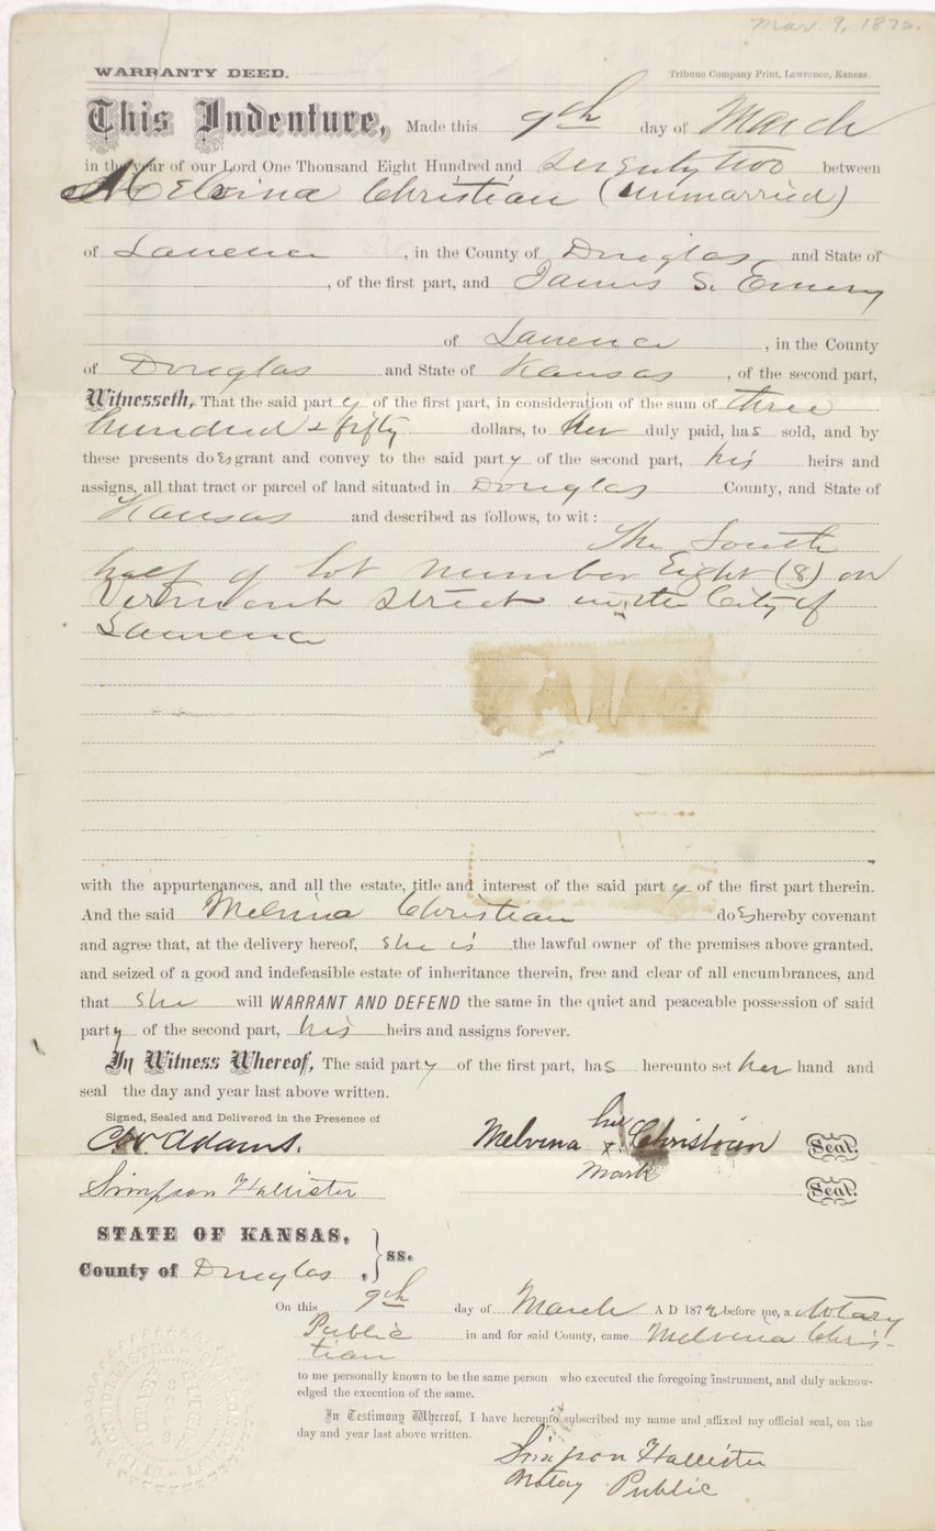 Mar. 9, 1872.
WARRANTY DEED.
Tribune Company Print, Lawrence, Kansas.
This Indenture, Made this 9th day of March
in the year of our Lord One Thousand Eight Hundred and Seventy two between
Melvina Christian (Unmarried)
of Lawrence, in the County of Douglas and State of
, of the first part, and James S. Emery
of Lawrence, in the County
of Douglas and State of Kansas, of the second part,
Witnesseth, That the said party of the first part, in consideration of the sum of three
hundred & fifty dollars, to her duly paid, has sold, and by
these presents does grant and convey to the said party of the second part, his heirs and
assigns, all that tract or parcel of land situated in Douglas County, and State of
Kansas and described as follows, to wit:
The South
half of lot number Eight (8) on
Vermont Street in the City of
Lawrence
with the appurtenances, and all the estate, title and interest of the said party of the first part therein.
And the said Melvina Christian does hereby covenant
and agree that, at the delivery hereof, she is the lawful owner of the premises above granted,
and seized of a good and indefeasible estate of inheritance therein, free and clear of all encumbrances, and
that She will WARRANT AND DEFEND the same in the quiet and peaceable possession of said
party of the second part, his heirs and assigns forever.
In Witness Whereof, The said party of the first part, has hereunto set her hand and
seal the day and year last above written.
Signed, Sealed and Delivered in the Presence of
her
C W. Adams. Melvina x Christian Seal.
mark
Simpson Hallister Seal.
STATE OF KANSAS,
County of Douglas, } ss.
On this 9th day of March A D 1872 before me, a Notary
Public in and for said County, came Melvina Chris-
tian
to me personally known to be the same person who executed the foregoing instrument, and duly acknow-
edged the execution of the same.
In Testimony Whereof, I have hereunto subscribed my name and affixed my official seal, on the
day and year last above written.
Simpson Hallister
Notay Public